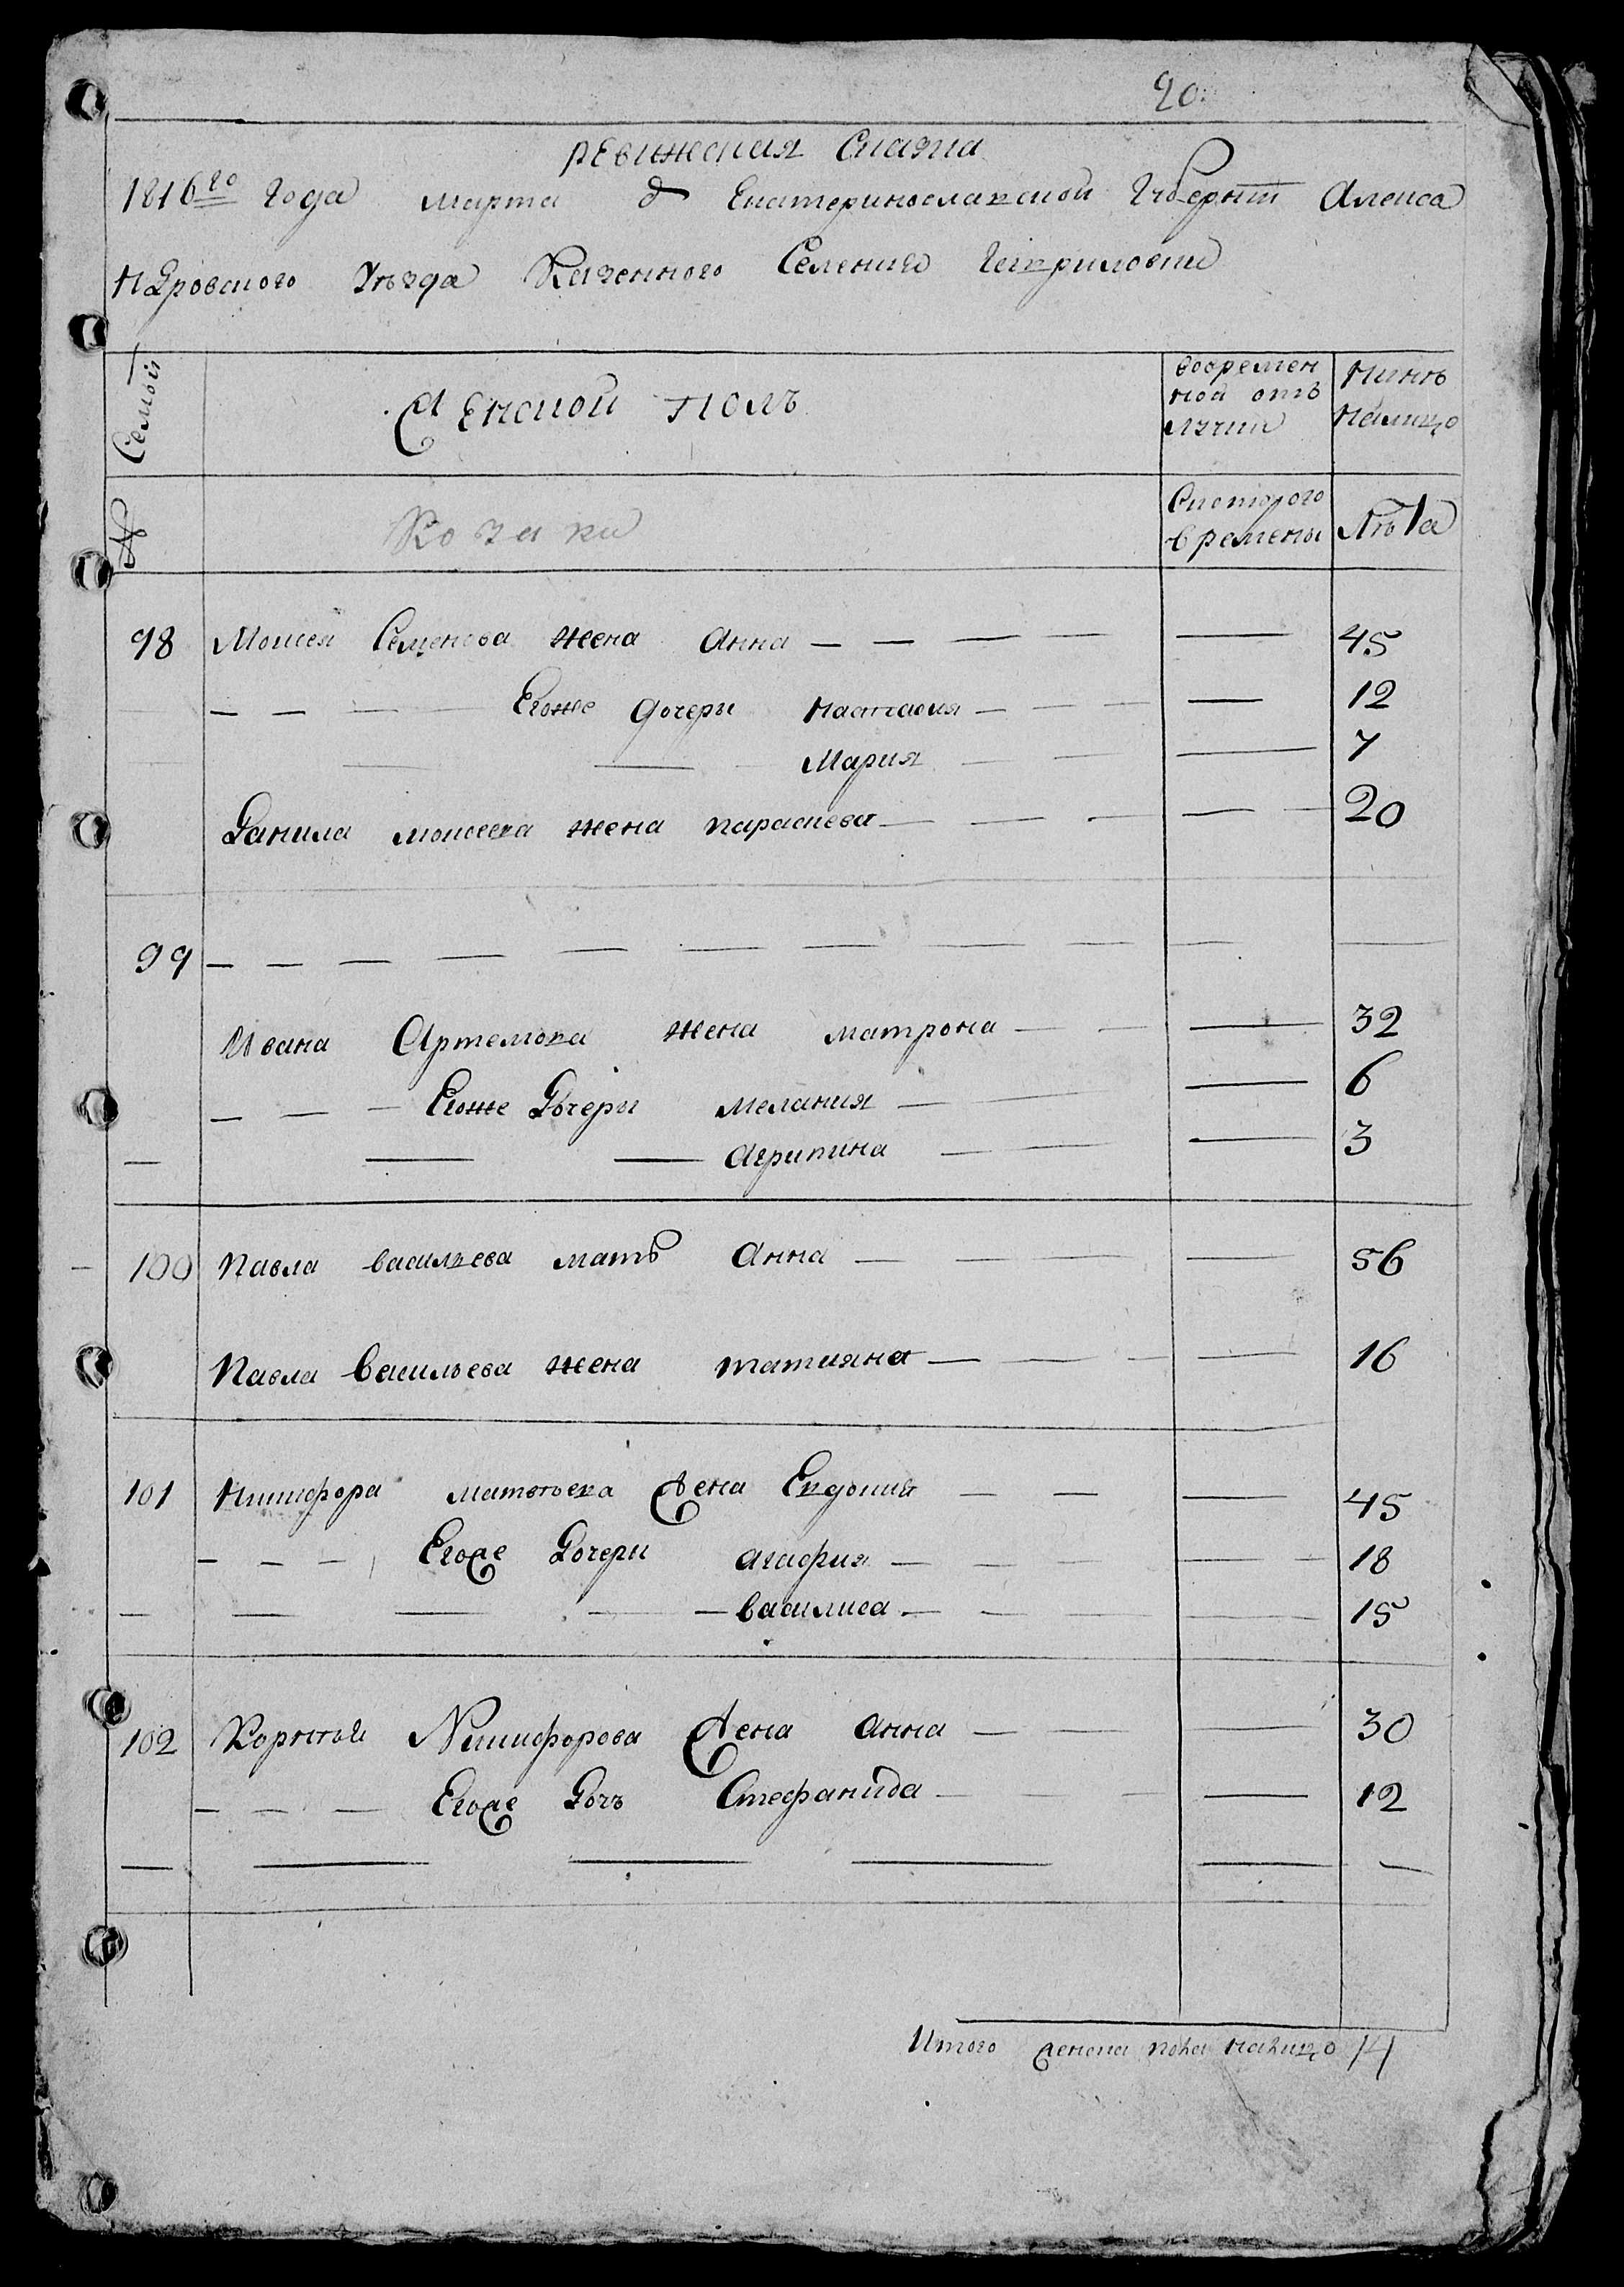 20.
ревижская Сказка
1816го года марта д Екатеринославской Губернии Алекса
ндровского Уезда Казенного Селения Гавриловки
Семьи Женской полъ вовремен ной отъ лучки Нынѣ налицо
№ Козаки Скоторого времены Лѣта
98 Моисея Семенова жена Анна — — — — — 45
— — — — Егоже дочери настасия — — — — 12
— — — Мария — — — 7
Данила моисеева жена параскева — — — — — — 20
99 — — — — — — — — — — —
Ивана Артемова жена матрона — — — 32
— — — Егоже Дочери мелания — — — 6
— — — агрипина — — — 3
100 павла васильева мать Анна — — — — — 56
Павла Васильева жена татияна — — — — 16
101 Никифора матвѣева жена Евдокия — — — 45
— — — Егоже Дочери агафия — — — — — 18
— — — — — василиса — — — — 15
102 Корнѣй Никифорова жена анна — — — 30
— — — Егоже Дочь Стефанида — — — 12
— — — — — —
Итого женска пола налицо 14